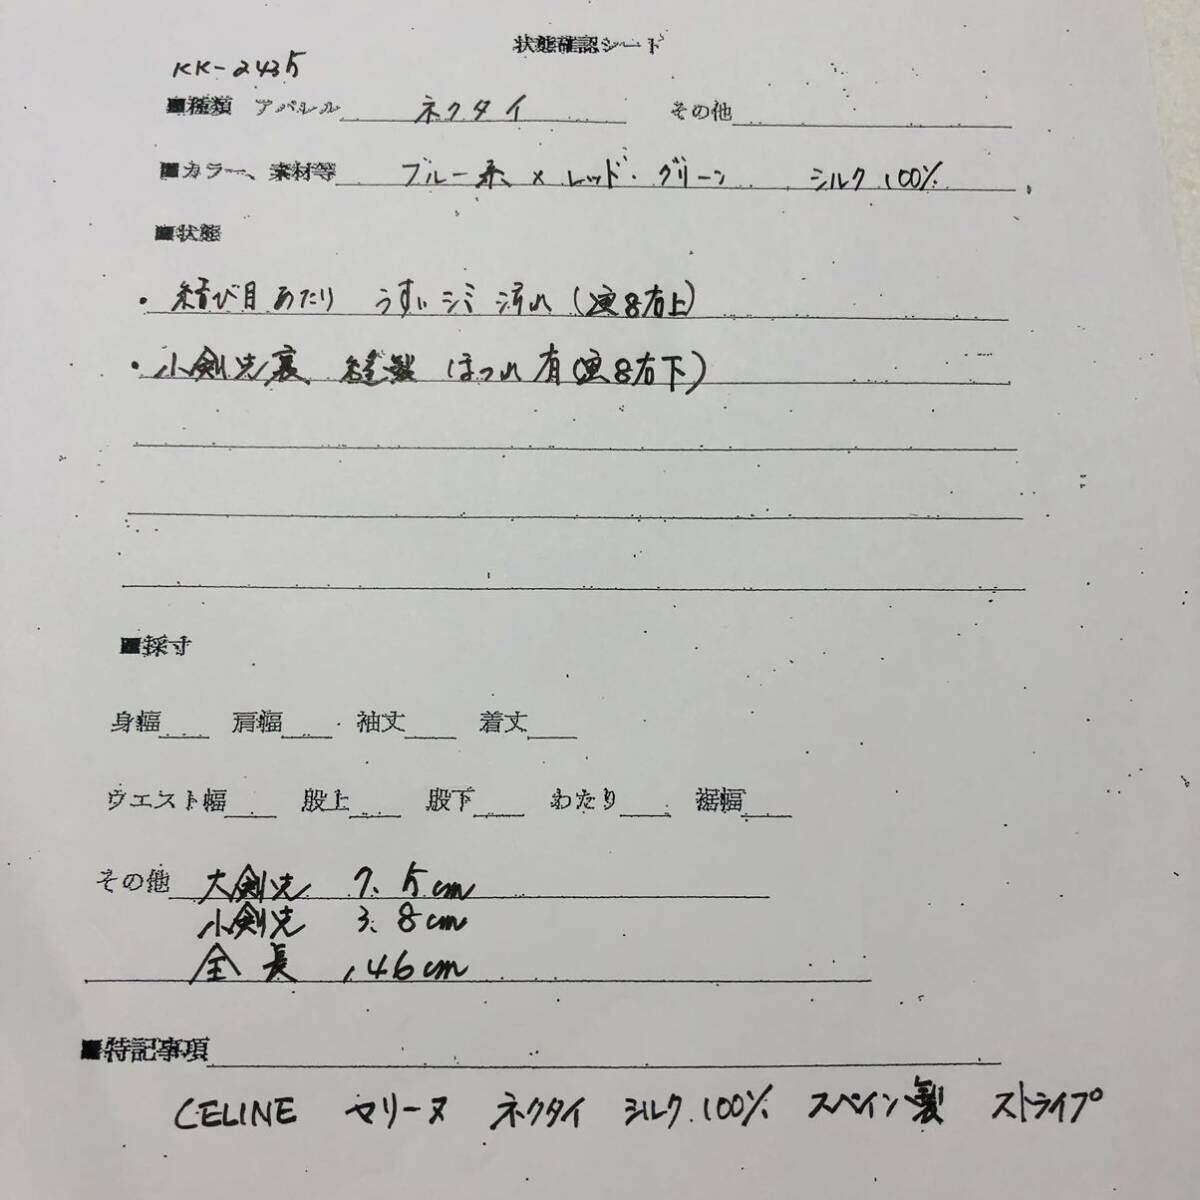 状態確認シート
KK-2435
■種類 アパレル ネクタイ その他
■カラー、素材等 ブルー系 × レッド・グリーン シルク 100%
■状態
・結び目あたり うすいシミ 汚れ (画8右上)
・小剣先裏、縫製 ほつれ有 (画8右下)
■採寸
身幅 肩幅 袖丈 着丈
ウエスト幅 股上 股下 わたり 裾幅
その他 大剣先 7.5cm
小剣先 3.8cm
全長 146cm
■特記事項
CELINE セリーヌ ネクタイ シルク 100% スペイン製 ストライプ